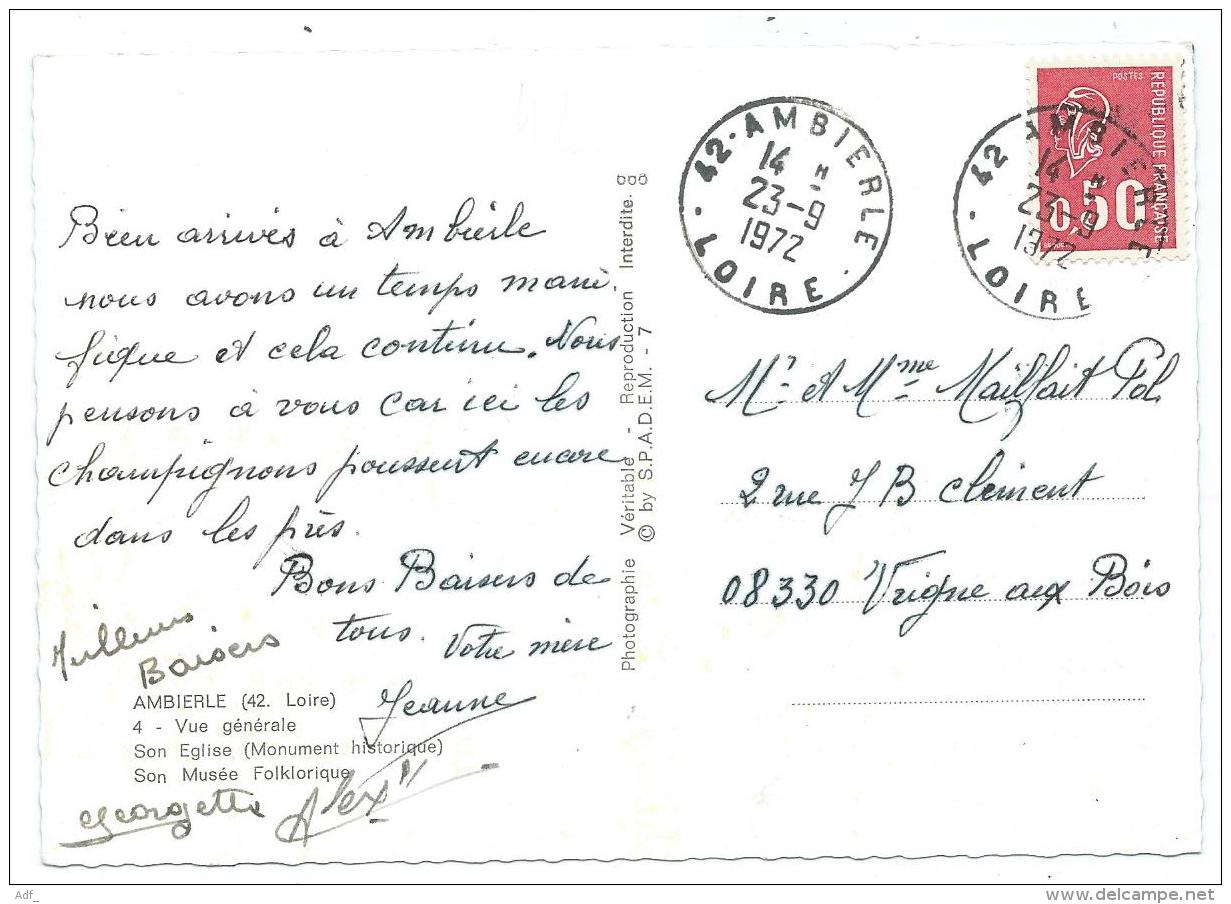 Bien arrivés à Ambierle
nous avons un temps mani
fique et cela continu. Nous
pensons à vous car ici les
champignons poussent encore
dans les près.
Bons Baisers de
tous. Votre mère
Jeanne
Meilleurs
Baisers
AMBIERLE (42. Loire)
4 - Vue générale
Son Eglise (Monument historique)
Son Musée Folklorique
Georgette Alex
Photographie Véritable - Reproduction Interdite.
© by S.P.A.D.E.M. - 7
42 - AMBIERLE
14 H
23-9
1972
LOIRE
42 AMBIERLE
14 H
23-9
1972
LOIRE
POSTES
REPUBLIQUE FRANÇAISE
0,50
Mr et Mme Mailfait Pol
2 rue J B clément
08330 Vrigne aux Bois
Adf_
www.delcampe.net